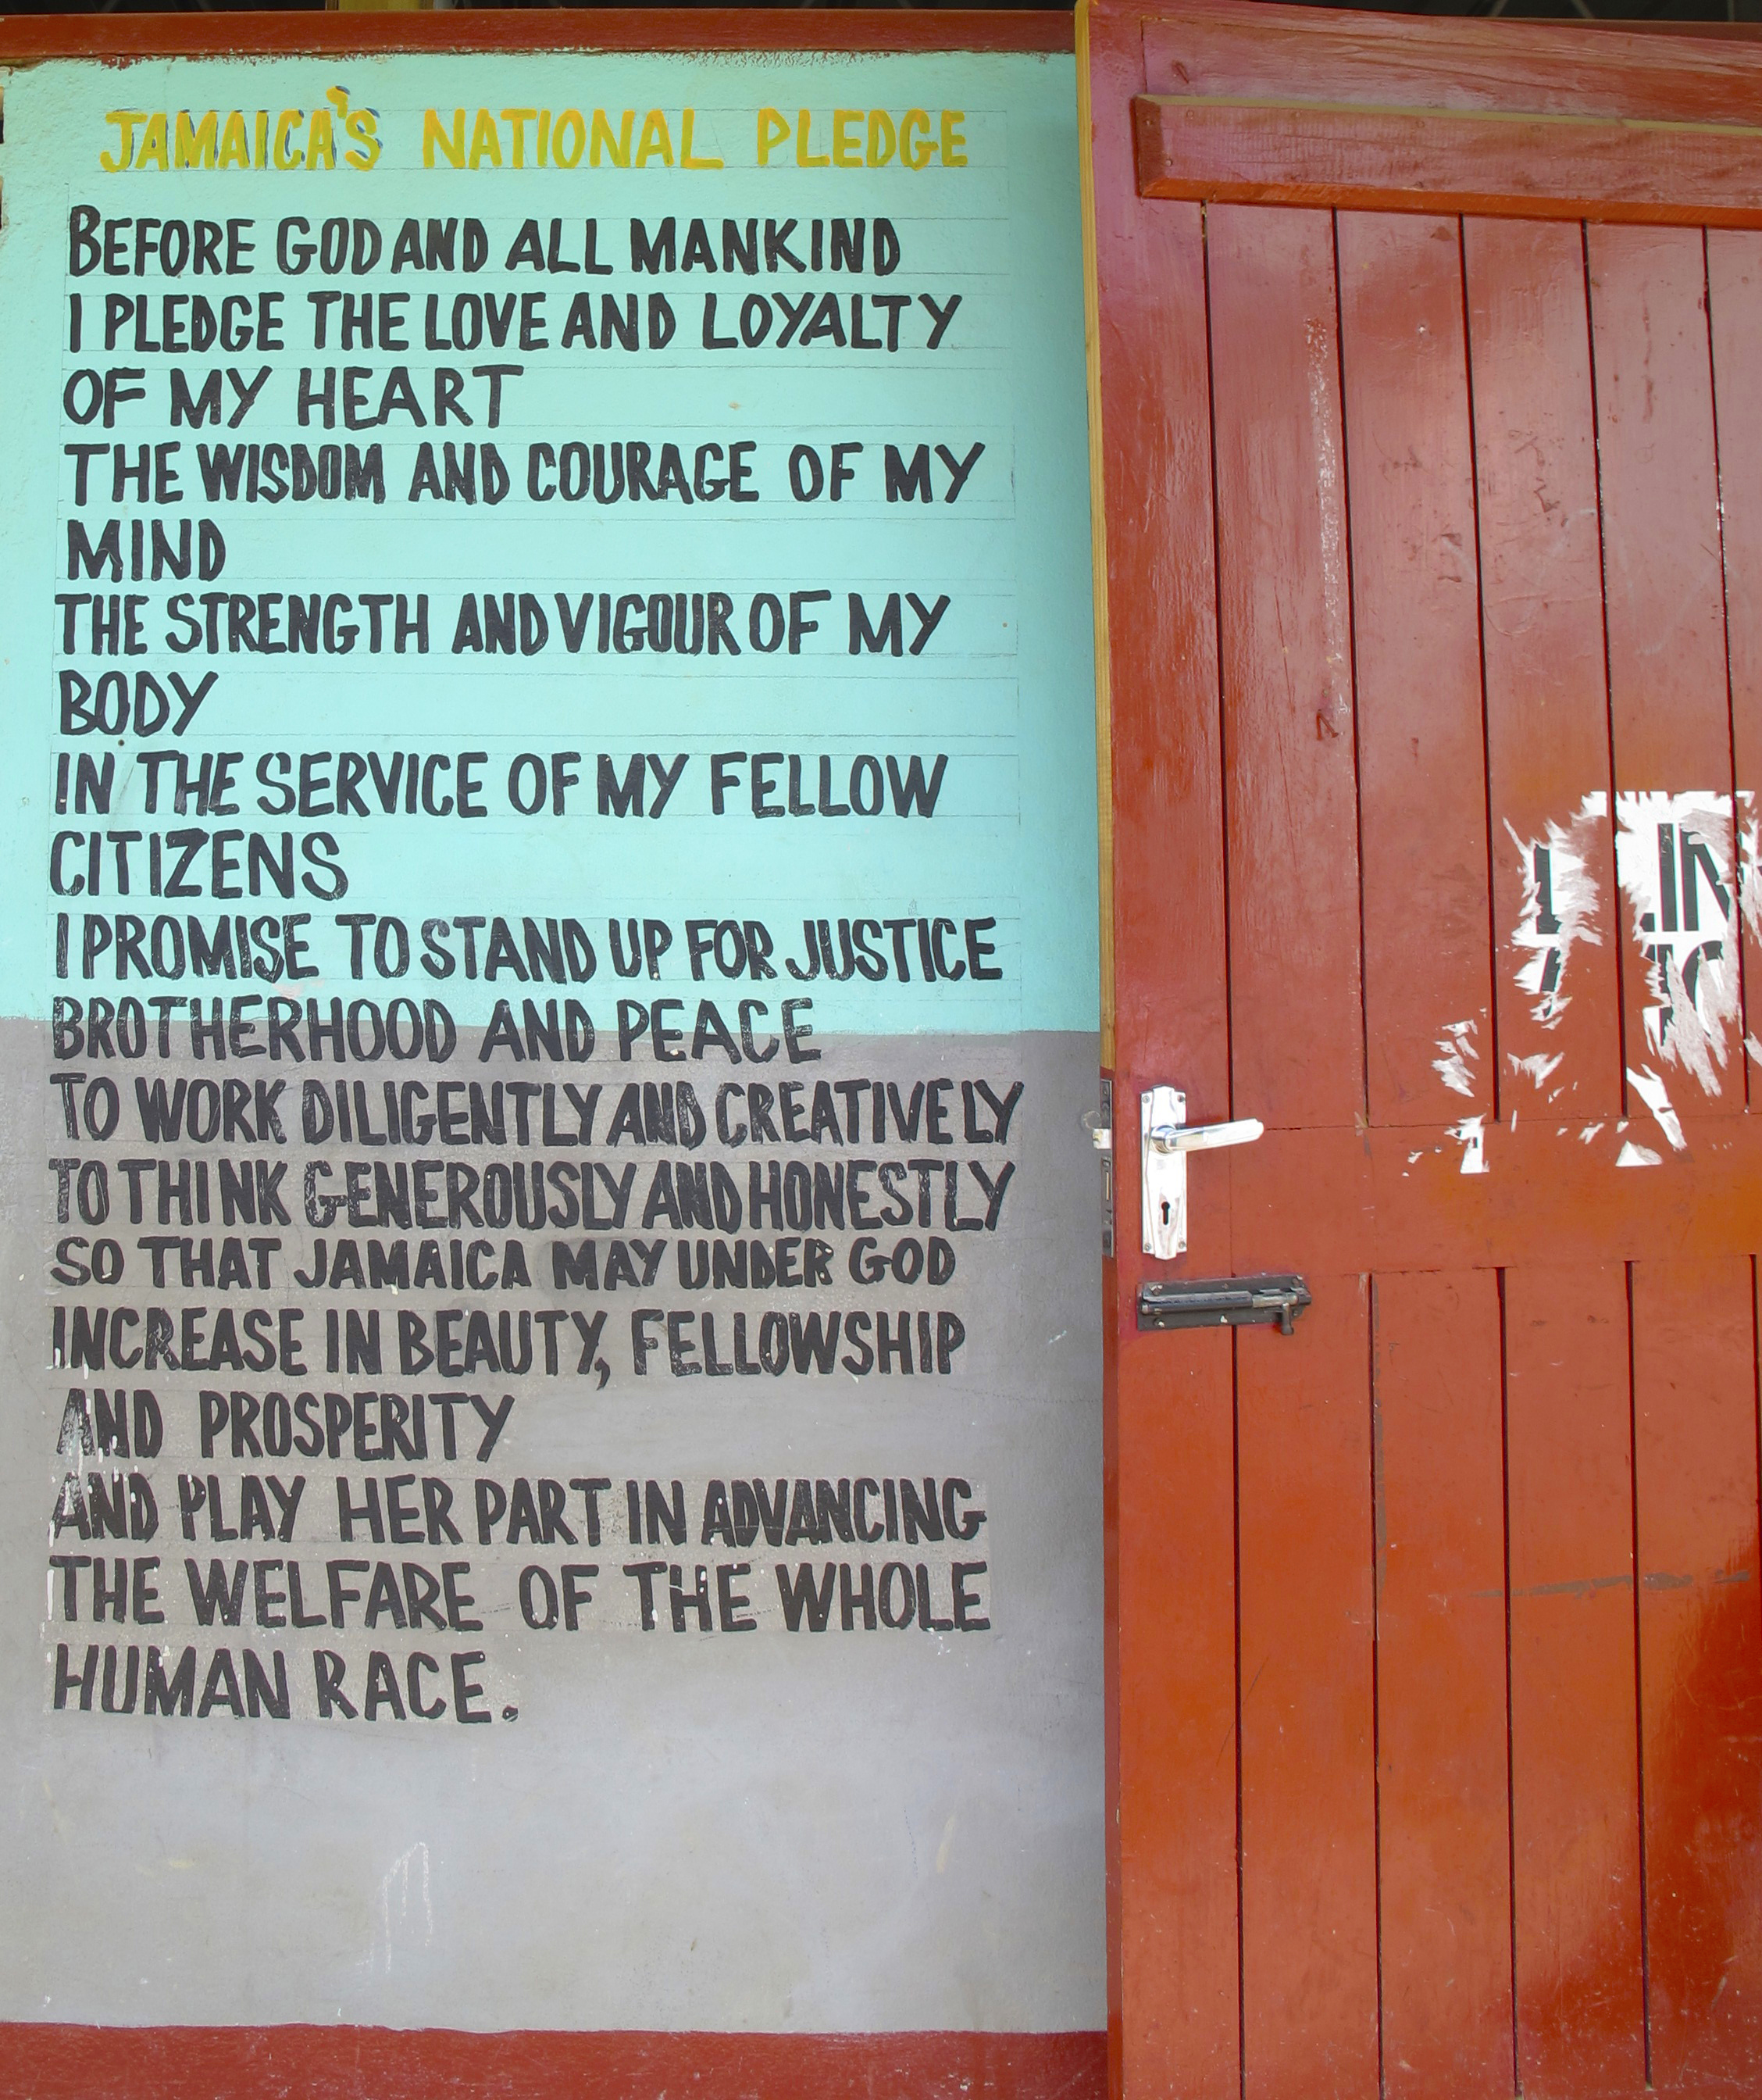 JAMAICA'S NATIONAL PLEDGE
BEFORE GOD AND ALL MANKIND
I PLEDGE THE LOVE AND LOYALTY
OF MY HEART
THE WISDOM AND COURAGE OF MY
MIND
THE STRENGTH AND VIGOUR OF MY
BODY
IN THE SERVICE OF MY FELLOW
CITIZENS
I PROMISE TO STAND UP FOR JUSTICE
BROTHERHOOD AND PEACE
TO WORK DILIGENTLY AND CREATIVELY
TO THINK GENEROUSLY AND HONESTLY
SO THAT JAMAICA MAY UNDER GOD
INCREASE IN BEAUTY, FELLOWSHIP
AND PROSPERITY
AND PLAY HER PART IN ADVANCING
THE WELFARE OF THE WHOLE
HUMAN RACE.